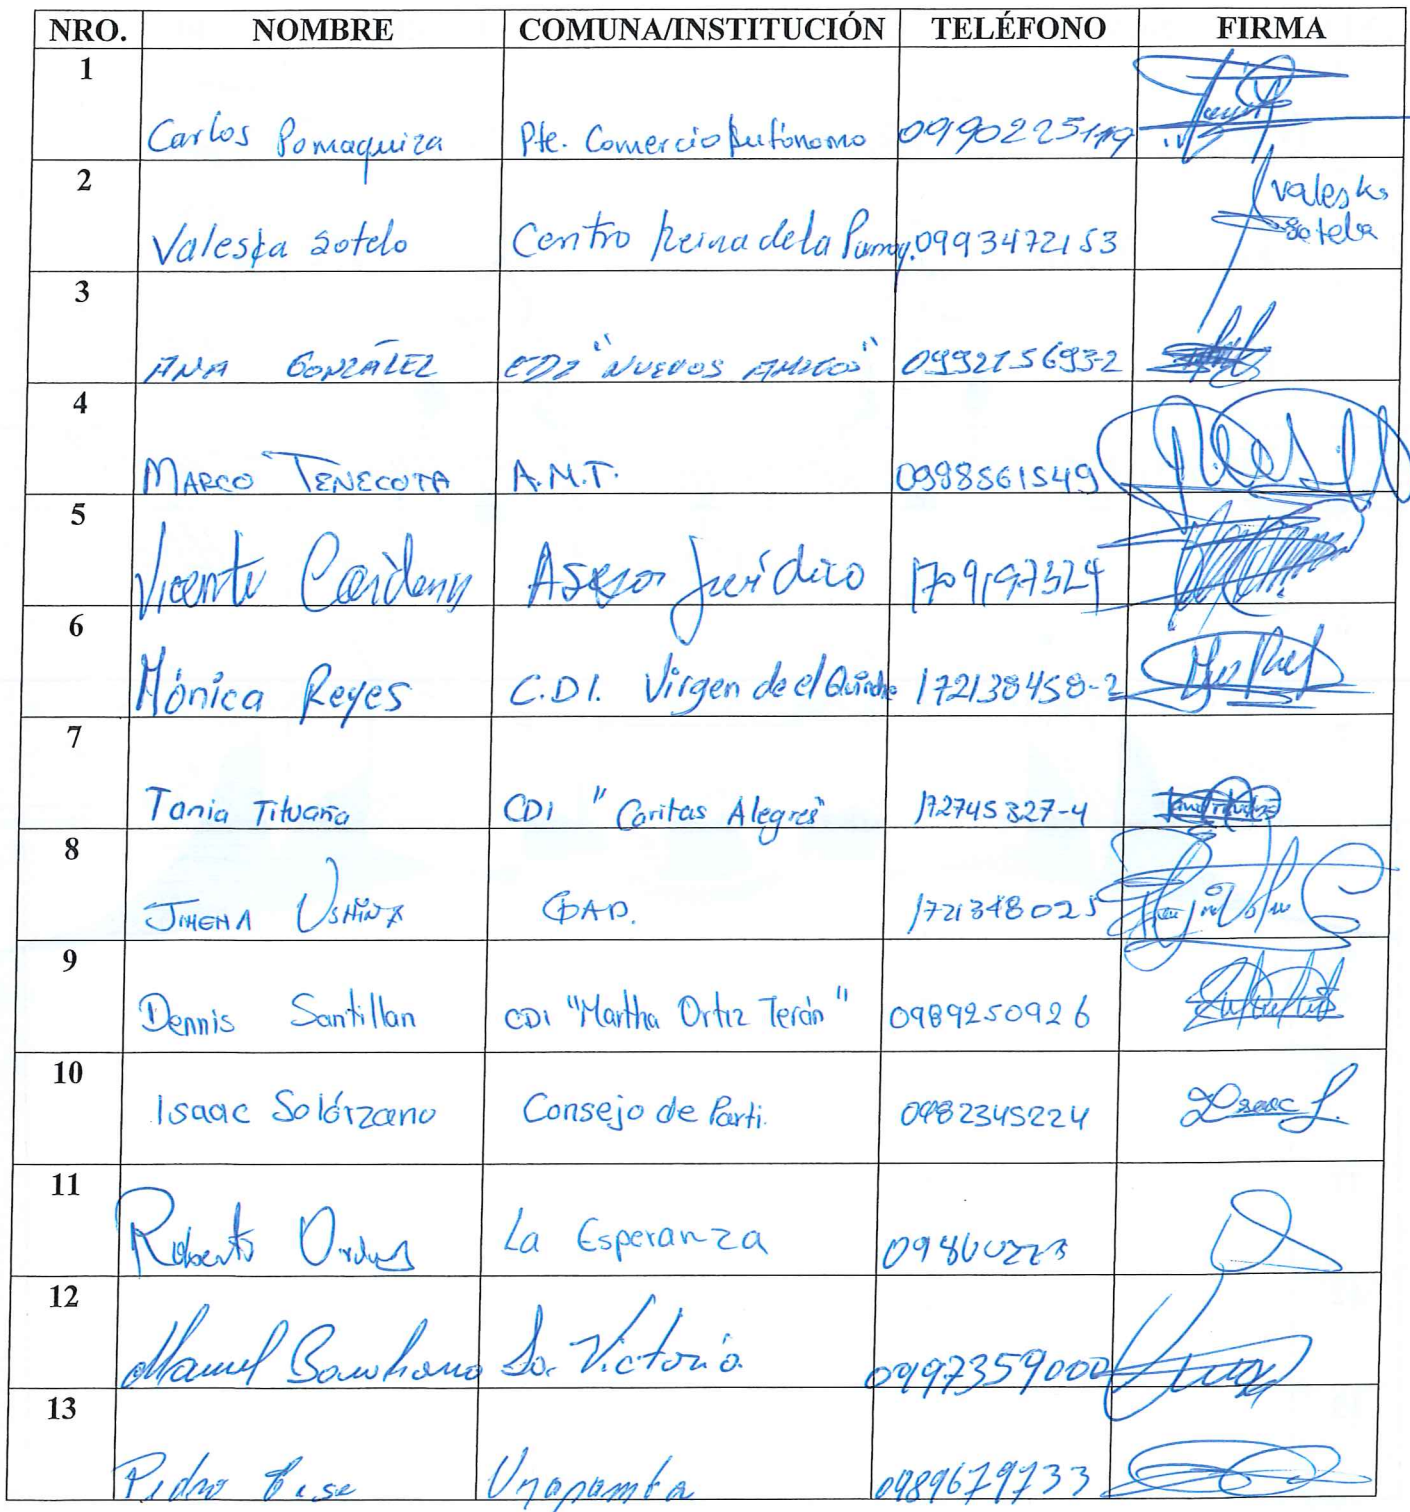 NRO. NOMBRE COMUNA/INSTITUCIÓN TELÉFONO FIRMA
1 Carlos Pomaquiza Pte. Comercio Autónomo
2 Valeska Sotelo Centro Reina de la 0993472153 Valeska Sotelo
3 ANA GONZÁLEZ CDI "NUEVOS AMIGOS" 099215693-2
4 MARCO TENECOTA A.M.T. 0998561549
5 Vicente Cárdenas Asesor Jurídico 1709197324
6 Mónica Reyes C.D.I. Virgen de el Quinche 172138458-2
7 Tania Tituaña CDI "Caritas Alegres" 172745327-4
8 JIMENA USHIÑA GAD. 1721348025
9 Dennis Santillan CDI "Martha Ortiz Terán" 0989250926
10 Isaac Solórzano Consejo de Parti. 0982345224 Isaac S.
11 Roberto La Esperanza
12 Manuel La Victoria 0997359000
13 Pedro 0989679733